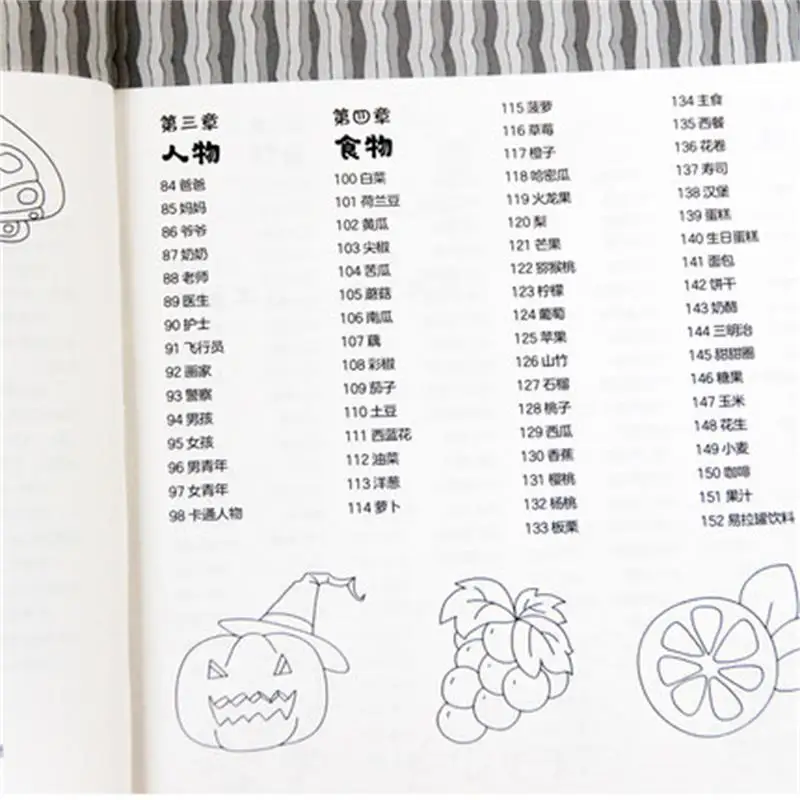 第三章
人物
84 爸爸
85 妈妈
86 爷爷
87 奶奶
88 老师
89 医生
90 护士
91 飞行员
92 画家
93 警察
94 男孩
95 女孩
96 男青年
97 女青年
98 卡通人物
第四章
食物
100 白菜
101 荷兰豆
102 黄瓜
103 尖椒
104 苦瓜
105 蘑菇
106 南瓜
107 藕
108 彩椒
109 茄子
110 土豆
111 西蓝花
112 油菜
113 洋葱
114 萝卜
115 菠萝
116 草莓
117 橙子
118 哈密瓜
119 火龙果
120 梨
121 芒果
122 猕猴桃
123 柠檬
124 葡萄
125 苹果
126 山竹
127 石榴
128 桃子
129 西瓜
130 香蕉
131 樱桃
132 杨桃
133 板栗
134 主食
135 西餐
136 花卷
137 寿司
138 汉堡
139 蛋糕
140 生日蛋糕
141 面包
142 饼干
143 奶酪
144 三明治
145 甜甜圈
146 糖果
147 玉米
148 花生
149 小麦
150 咖啡
151 果汁
152 易拉罐饮料